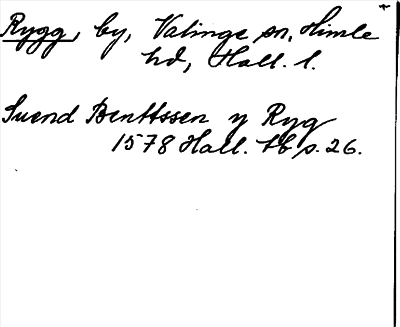 Rygg, by, Valinge sn, Himle
hd, Hall. l.
Suend Benttssen y Ryg
1578 Hall. tb s. 26.